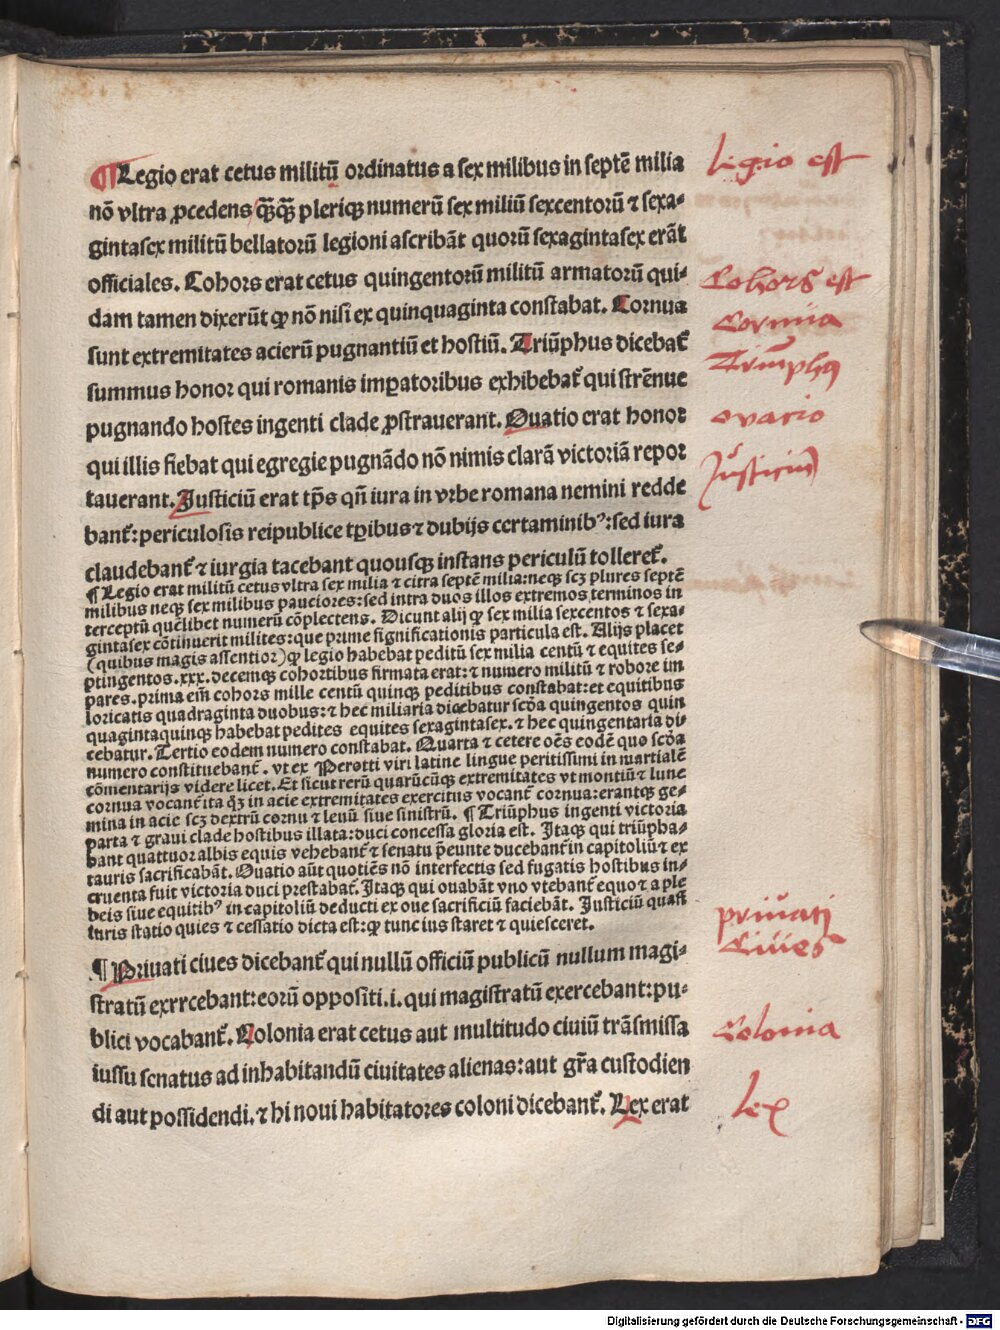 ¶Legio erat cetus militū ordinatus a sex milibus in septē milia
nō vltra ꝓcedens qꝫ̄qꝫ̄ pleriqꝫ numerū sex miliū sexcentorū ⁊ sexa⸗
gintasex militū bellatorū legioni ascribāt quorū sexagintasex erāt
officiales. Cohors erat cetus quingentorū militū armatorū qui⸗
dam tamen dixerūt ꝙ nō nisi ex quinquaginta constabat. Cornua
sunt extremitates acierū pugnantiū et hostiū. Triūphus dicebat᷑
summus honor qui romanis imꝑatoribus exhibebat᷑ qui strēnue
pugnando hostes ingenti clade ꝓstrauerant. Ouatio erat honor
qui illis fiebat qui egregie pugnādo nō nimis clarā victoriā repor
tauerant. Justiciū erat tp̄s qn̄ iura in vrbe romana nemini redde
bant᷑: periculosis reipublice tp̄ibus ⁊ dubijs certaminibꝰ: sed iura
claudebant᷑ ⁊ iurgia tacebant quousqꝫ instans periculū tolleret᷑.
¶ Legio erat militū cetus vltra sex milia ⁊ citra septē milia: neqꝫ scꝫ plures septē
milibus neqꝫ sex milibus pauciores: sed intra duos illos extremos terminos in
terceptū quēlibet numerū cōplectens. Dicunt alij ꝙ sex milia sexcentos ⁊ sexa⸗
gintasex cōtinuerit milites: que prime significationis particula est. Alijs placet
(quibus magis assentior) ꝙ legio habebat peditū sex milia centū ⁊ equites se⸗
ptingentos .xxx. decemqꝫ cohortibus firmata erat: ⁊ numero militū ⁊ robore im
pares. prima em̄ cohors mille centū quinqꝫ peditibus constabat: et equitibus
loricatis quadraginta duobus: ⁊ hec miliaria dicebatur scd̄a quingentos quin
quagintaquinqꝫ habebat pedites equites sexagintasex. ⁊ hec quingentaria di⸗
cebatur. Tertio eodem numero constabat. Quarta ⁊ cetere oēs eodē quo scd̄a
numero constituebant᷑. vt ex Perotti viri latine lingue peritissimi in martialē
cōmentarijs videre licet. Et sicut rerū quarūcūqꝫ extremitates vt montiū ⁊ lune
cornua vocant᷑ ita qꝫ in acie extremitates exercitus vocant᷑ cornua: erantqꝫ ge⸗
mina in acie scꝫ dextrū cornu ⁊ leuū siue sinistrū. ¶ Triūphus ingenti victoria
parta ⁊ graui clade hostibus illata: duci concessa gloria est. Itaqꝫ qui triūpha⸗
bant quattuor albis equis vehebant᷑ ⁊ senatu p̄eunte ducebant᷑ in capitoliū ⁊ ex
tauris sacrificabāt. Ouatio aūt quotiēs nō interfectis sed fugatis hostibus in⸗
cruenta fuit victoria duci prestabat᷑. Itaqꝫ qui ouabāt vno vtebant᷑ equo ⁊ a ple
beis siue equitibꝰ in capitoliū deducti ex oue sacrificiū faciebāt. Justiciū quasi
iuris statio quies ⁊ cessatio dicta est: ꝙ tunc ius staret ⁊ quiesceret.
¶ Priuati ciues dicebant᷑ qui nullū officiū publicū nullum magi⸗
stratū exrrcebant: eorū oppositi .i. qui magistratū exercebant: pu⸗
blici vocabant᷑. Nolonia erat cetus aut multitudo ciuiū trāsmissa
iussu senatus ad inhabitandū ciuitates alienas: aut gr̄a custodien
di aut possidendi. ⁊ hi noui habitatores coloni dicebant᷑. Lex erat
legio est
Cohors est
Cornua
Triūphꝰ
ovacio
Justiciū
priuati
Ciues
Colonia
lex
Digitalisierung gefördert durch die Deutsche Forschungsgemeinschaft - DFG